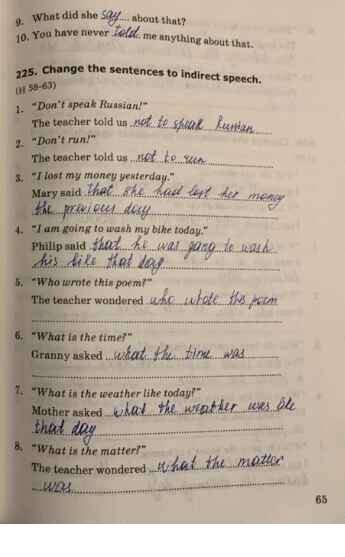 9. What did she say about that?
10. You have never told me anything about that.
225. Change the sentences to indirect speech.
(§§ 58-63)
1. "Don't speak Russian!"
The teacher told us not to speak Russian
2. "Don't run!"
The teacher told us not to run
3. "I lost my money yesterday."
Mary said that she had lost her money
the previous day
4. "I am going to wash my bike today."
Philip said that he was going to wash
his bike that day
5. "Who wrote this poem?"
The teacher wondered who wrote this poem
6. "What is the time?"
Granny asked what the time was
7. "What is the weather like today?"
Mother asked what the weather was like
that day
8. "What is the matter?"
The teacher wondered what the matter
was
65